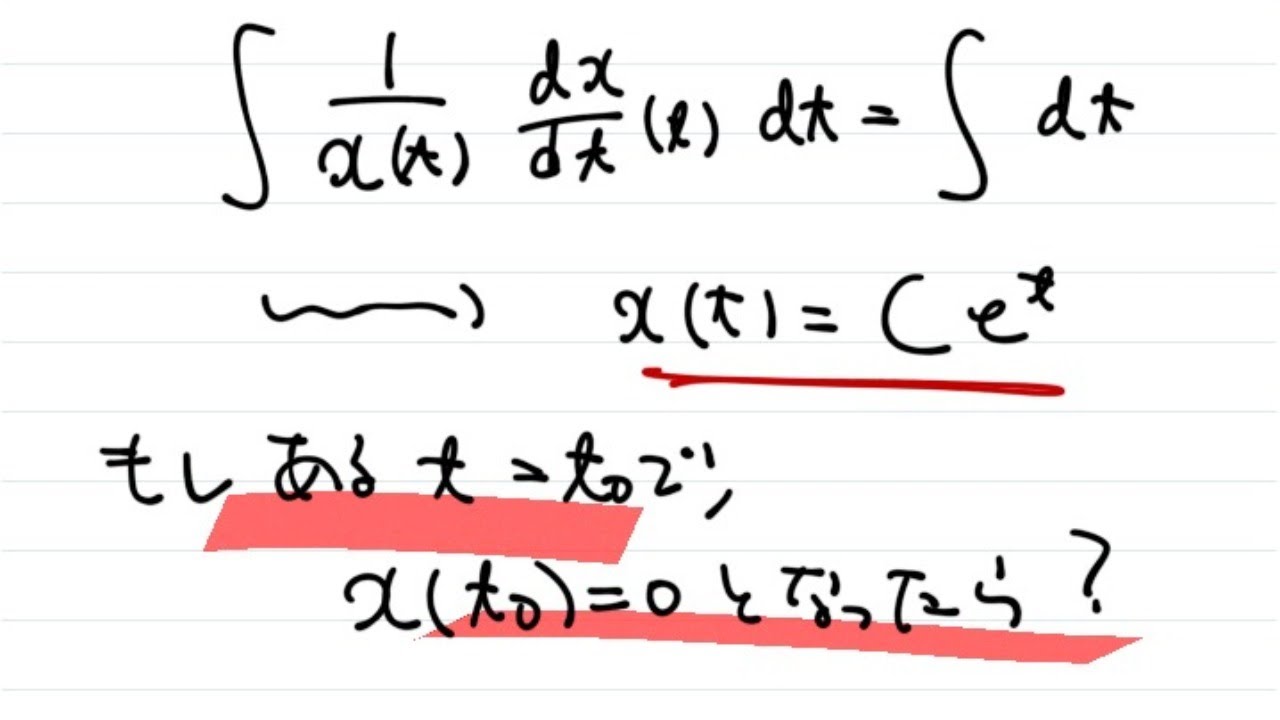 ∫ 1/x(t) dx/dt (t) dt = ∫ dt
⇝ x(t) = C e^t
もし ある t = t₀ で,
x(t₀) = 0 となったら?